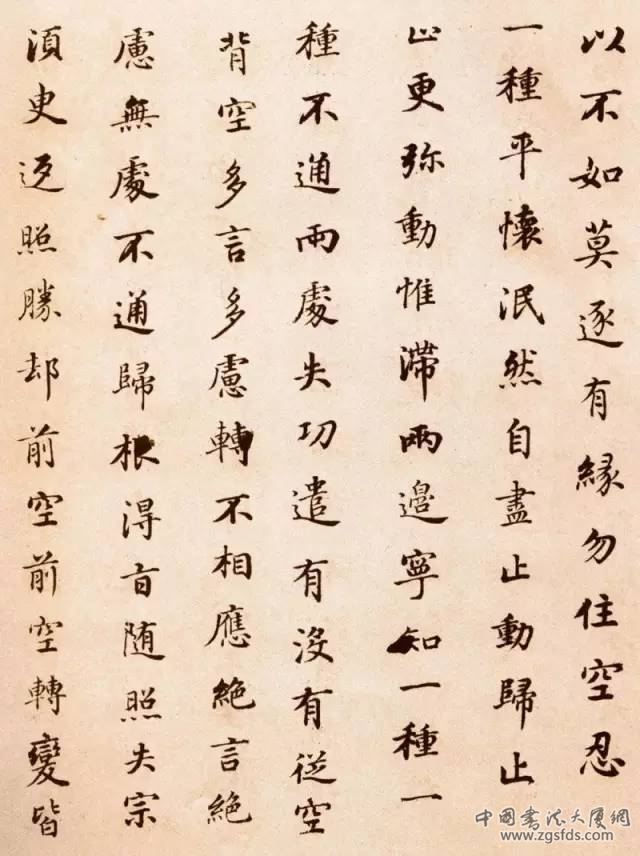 以不如莫逐有緣勿住空忍
一種平懷泯然自盡止動歸止
止更弥動惟滞兩邉寧知一種一
種不通兩處失功遣有没有従空
背空多言多慮轉不相應絶言絶
慮無處不通歸根得旨随照失宗
須臾返照勝却前空前空轉變皆
中国書法大厦網
www.zgsfds.com